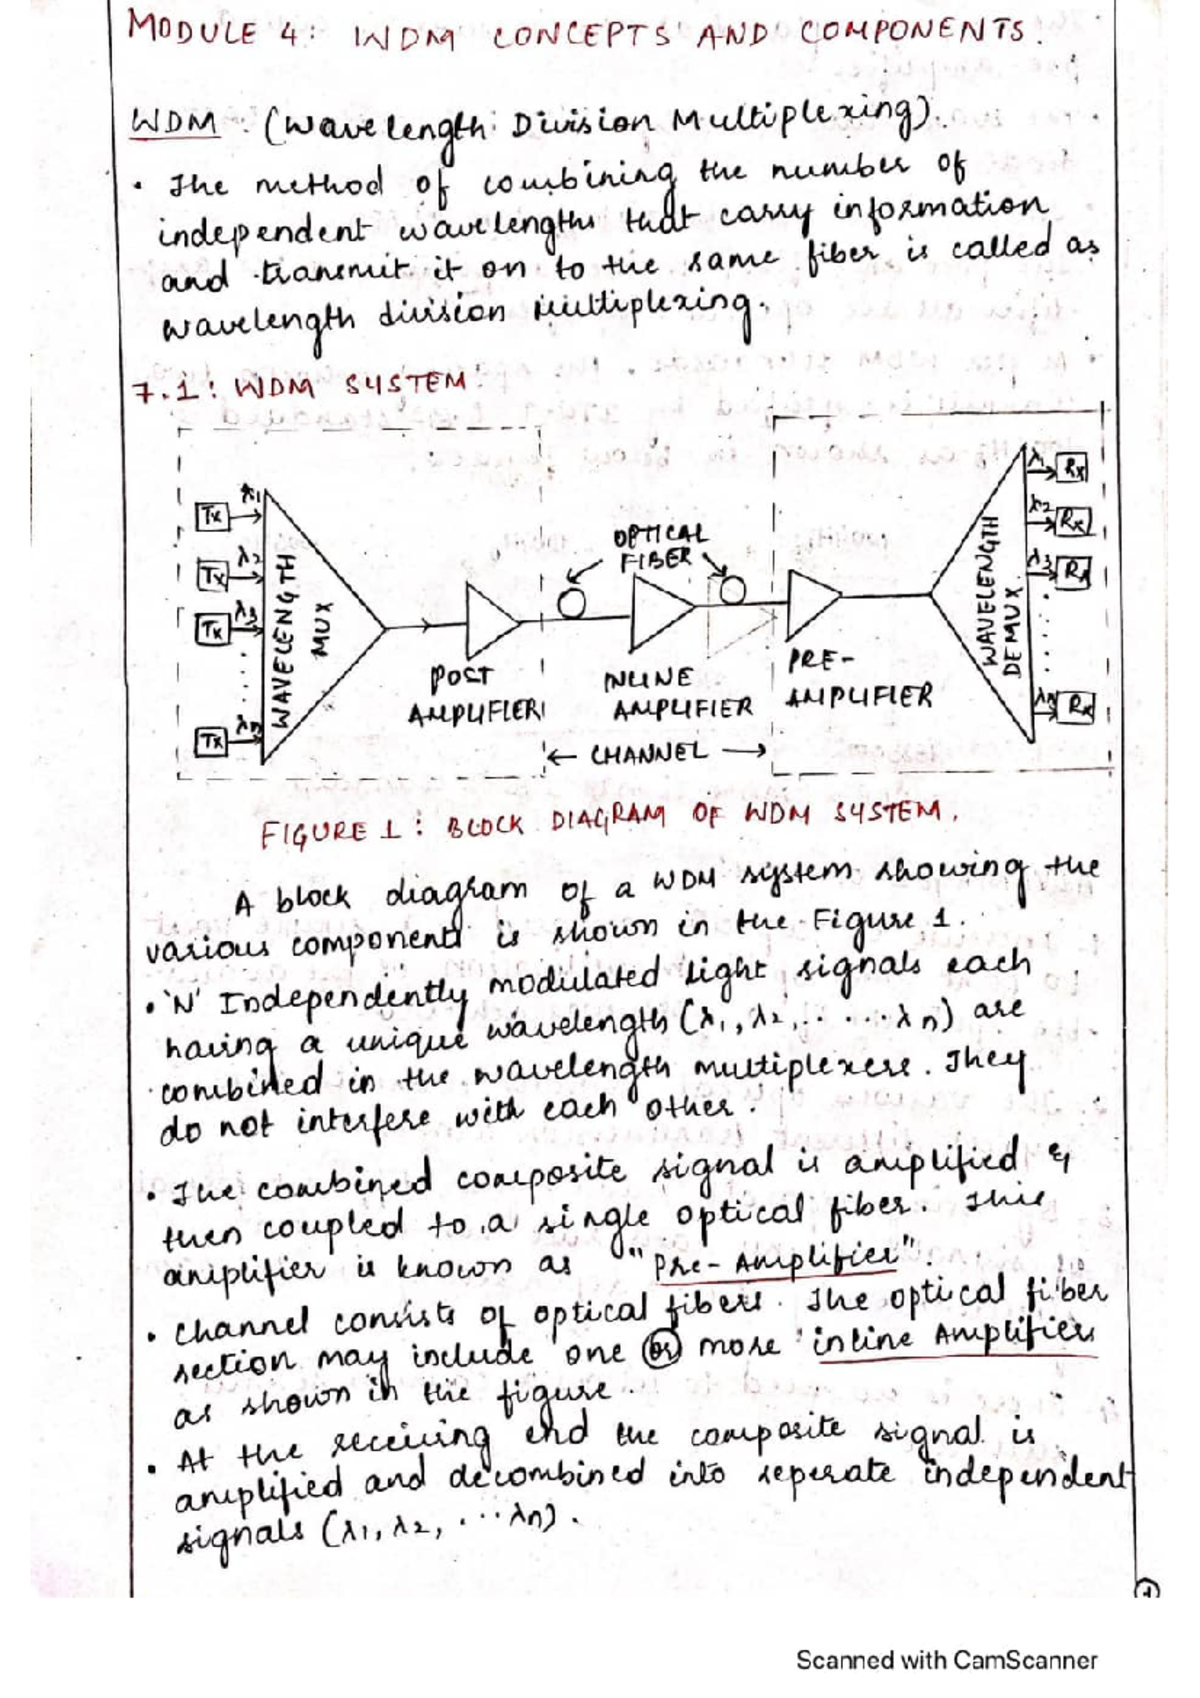 MODULE 4: WDM CONCEPTS AND COMPONENTS.
WDM: (Wavelength Division Multiplexing).
• The method of combining the number of
independent wavelengths that carry information
and transmit it on to the same fiber is called as
wavelength division Multiplexing.
7.1: WDM SYSTEM:
Tx λ1
Tx λ2
Tx λ3
Tx λn
WAVELENGTH
MUX
POST
AMPLIFIER
OPTICAL
FIBER
INLINE
AMPLIFIER
← CHANNEL →
PRE-
AMPLIFIER
WAVELENGTH
DEMUX
λ1 Rx
λ2 Rx
λ3 Rx
λn Rx
FIGURE 1: BLOCK DIAGRAM OF WDM SYSTEM.
A block diagram of a WDM system showing the
various components is shown in the Figure 1.
• 'N' Independently modulated light signals each
having a unique wavelength (λ1, λ2, ..... λn) are
combined in the wavelength multiplexers. They
do not interfere with each other.
• The combined composite signal is amplified &
then coupled to a single optical fiber. This
amplifier is known as "Pre-Amplifier".
• Channel consists of optical fibers. The optical fiber
section may include one or more inline Amplifiers
as shown in the figure.
• At the receiving end the composite signal is
amplified and decombined into seperate independent
signals (λ1, λ2, ...λn).
1
Scanned with CamScanner